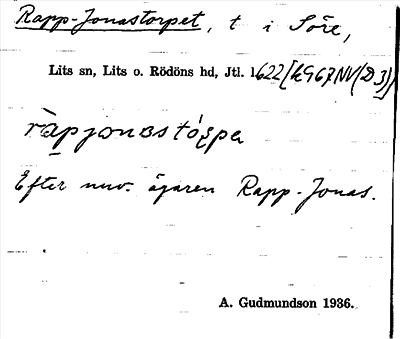 Rapp-Jonastorpet, t i Söre,
Lits sn, Lits o. Rödöns hd, Jtl. 1622 [kG67NV(D3)]
ràpjonastórpa
Efter nuv. ägaren Rapp-Jonas.
A. Gudmundson 1936.